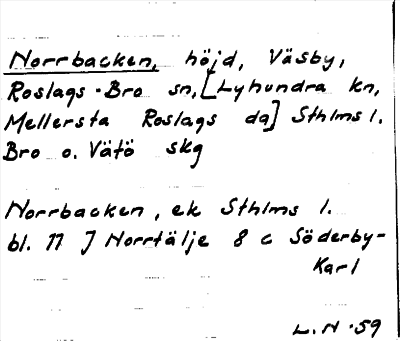 Norrbacken, höjd, Väsby,
Roslags-Bro sn, [Lyhundra kn,
Mellersta Roslags da] Sthlms l.
Bro o. Vätö skg
Norrbacken, ek Sthlms l.
bl. 77 J Norrtälje 8 c Söderby-
Karl
L.N -59